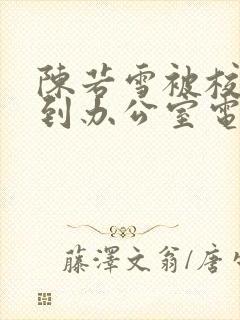 陈若雪被校
到办公室电
藤澤文翁/唐